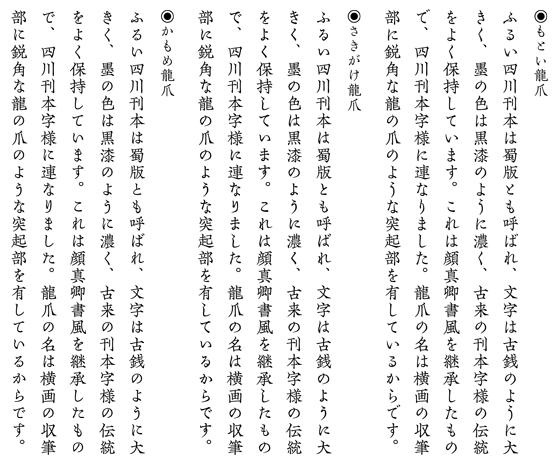 ◉もとい龍爪
ふるい四川刊本は蜀版とも呼ばれ、文字は古銭のように大
きく、墨の色は黒漆のように濃く、古来の刊本字様の伝統
をよく保持しています。これは顔真卿書風を継承したもの
で、四川刊本字様に連なりました。龍爪の名は横画の収筆
部に鋭角な龍の爪のような突起部を有しているからです。
◉さきがけ龍爪
ふるい四川刊本は蜀版とも呼ばれ、文字は古銭のように大
きく、墨の色は黒漆のように濃く、古来の刊本字様の伝統
をよく保持しています。これは顔真卿書風を継承したもの
で、四川刊本字様に連なりました。龍爪の名は横画の収筆
部に鋭角な龍の爪のような突起部を有しているからです。
◉かもめ龍爪
ふるい四川刊本は蜀版とも呼ばれ、文字は古銭のように大
きく、墨の色は黒漆のように濃く、古来の刊本字様の伝統
をよく保持しています。これは顔真卿書風を継承したもの
で、四川刊本字様に連なりました。龍爪の名は横画の収筆
部に鋭角な龍の爪のような突起部を有しているからです。